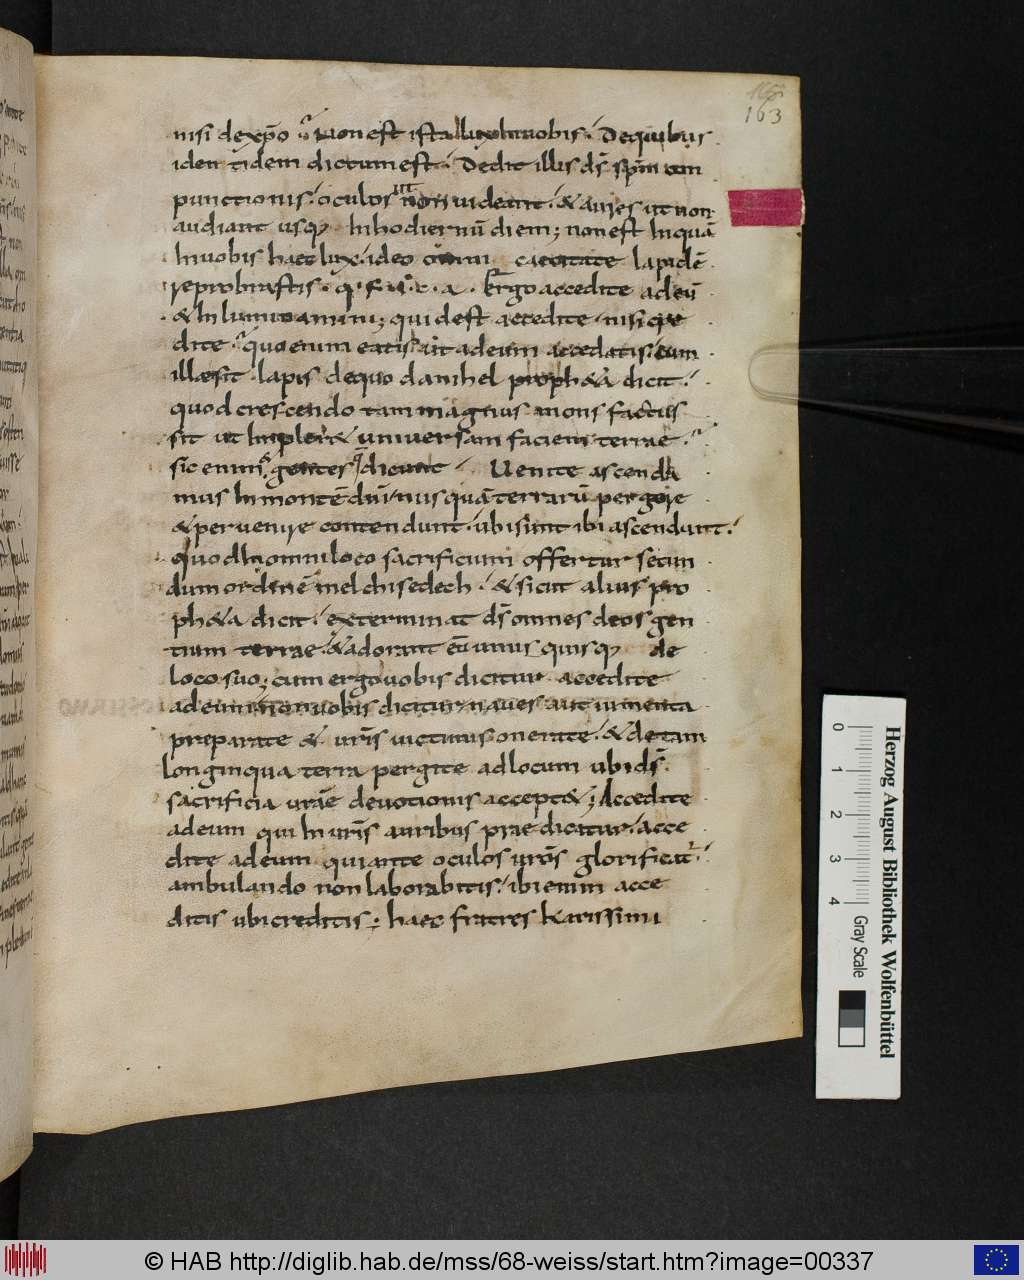 163
nisi de xp̄o. Non est ista lux in uobis. De quibus
iden tidem dictum est. Dedit illis dr̄s sp̄m con
punctionis. oculos ut non uideant. & aures ut non
audiant usq; In hodiernū diem; non est Inquā
In uobis haec lux. ideo omni caecitate lapidē
reprobrastis. q. f. u. c. a. Ergo accedite ad eū
& In luminamini; quid est accedite. nisi cre
dite. quo enim eatis. ut ad eum accedatis. cum
ille sit lapis de quo danihel proph&a dicit.
quod crescendo tam magnus mons factus
sit ut Impler& uniuersam faciem terrae.
sic enim gentes dicunt. Uenite ascenda
mus In montē dn̄i. nusquā terrarū pergere
& peruenire contendunt. ubi sunt ibi ascendunt.
quod In omni loco sacrificium offertur secun
dum ordinē melchisedech. & sicut alius pro
ph&a dicit. exterminat dr̄s omnes deos gen
tium terrae. & adorant eū unus quisq; de
loco suo; cum ergo uobis dicitur accedite
ad eum. non uobis dicitur naues aut iumenta
preparate & ur̄is uictimis onerate. & de tam
longinqua terra pergite ad locum ubi dr̄s
sacrificia urāe deuotionis accept&; Accedite
ad eum qui In ur̄is auribus praedicatur. acce
dite ad eum qui ante oculos ur̄os glorificat.
ambulando non laborabitis. ibi enim acce
ditis ubi creditis; haec fratres karissimi
0 1 2 3 4
Herzog August Bibliothek Wolfenbüttel
Gray Scale
© HAB http://diglib.hab.de/mss/68-weiss/start.htm?image=00337